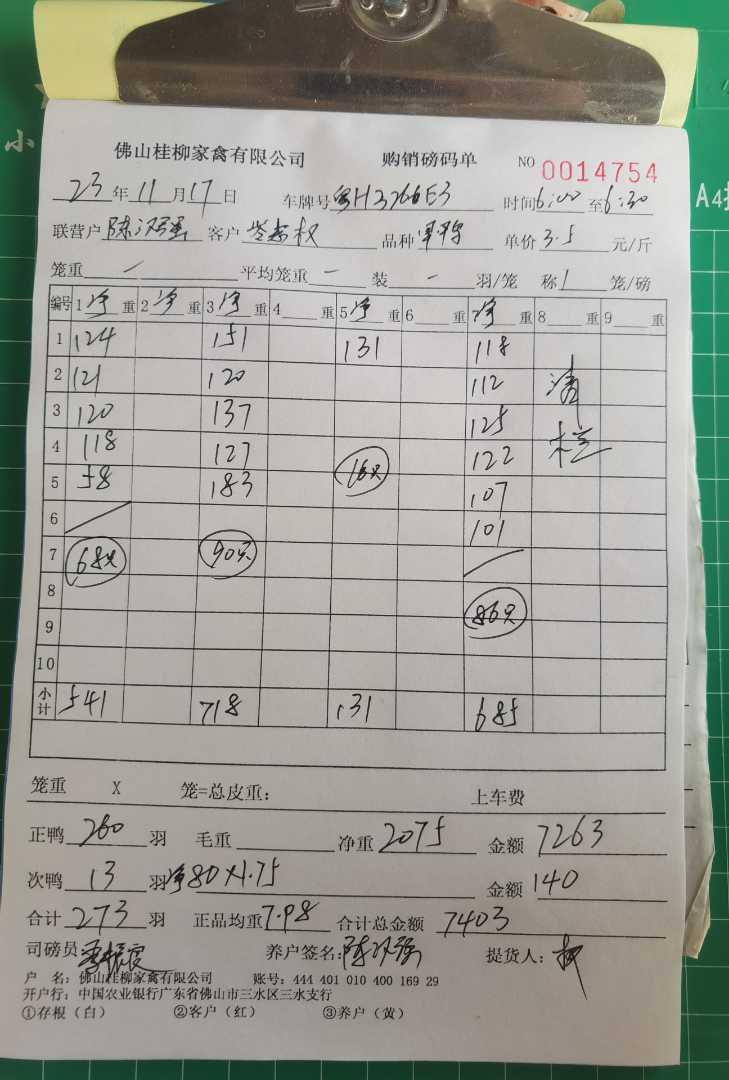 小
佛山桂柳家禽有限公司 购销磅码单 NO 0014754
A4
23年11月17日 车牌号粤H3266E3 时间6:00至6:30
联营户 陈 客户 权 品种 单价3.5元/斤
笼重 — 平均笼重 — 装 — 羽/笼 称1笼/磅
编号 1净重 2净重 3净重 4重 5净重 6重 7净重 8重 9重
1 124 151 131 118
2 121 120 112 清
3 120 137 125
4 118 127 122 栏
5 58 183 16只 107
6 101
7 68只 90只
8 86只
9
10
小计 541 718 131 685
笼重 X 笼=总皮重: 上车费
正鸭260羽 毛重 净重2075 金额7263
次鸭13羽 净80×1.75 金额140
合计273羽 正品均重7.98 合计总金额7403
司磅员 养户签名:陈 强 提货人:
户 名:佛山桂柳家禽有限公司 账号:444 401 010 400 169 29
开户行:中国农业银行广东省佛山市三水区三水支行
①存根(白) ②客户(红) ③养户(黄)